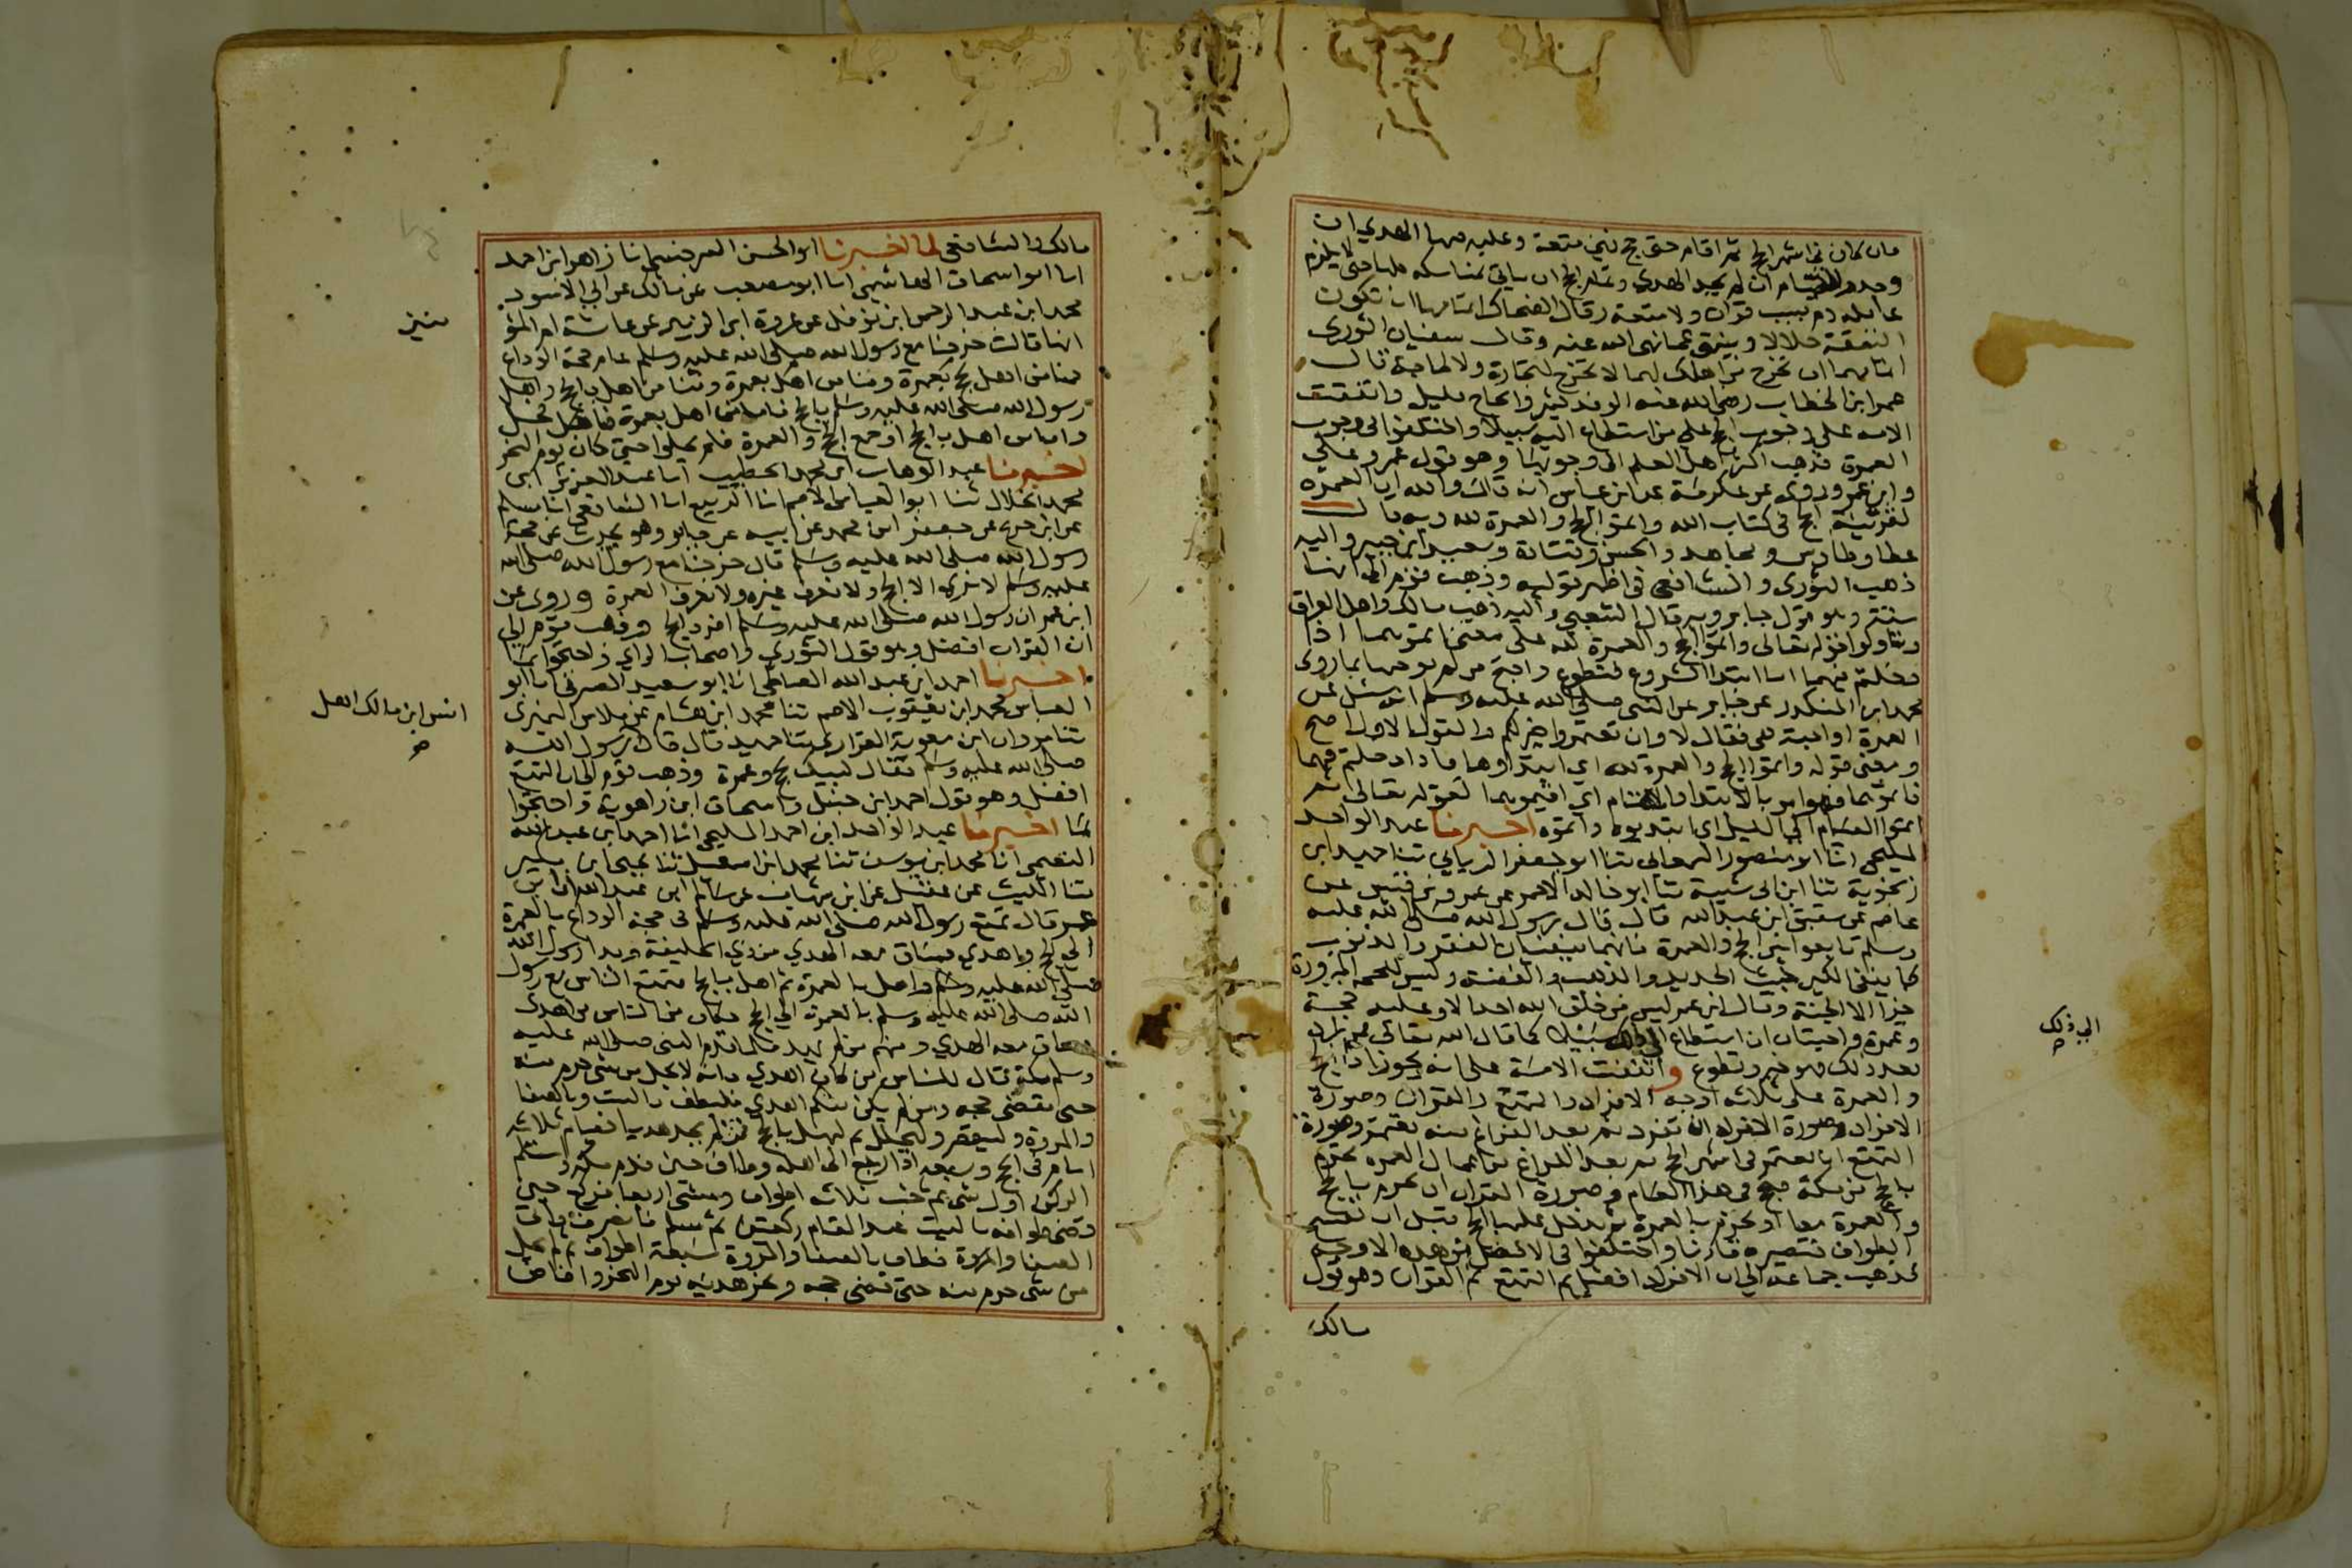 مان كان في اشهر الحج ثم اقام حتى حج فهي متعة وعليه فيها الهدي ان
وجد والصيام ان لم يجد الهدي وتمام الحج ان ياتي بمناسكه كلها حتى لا يلزم
عامله دم بسبب قران ولا متعة وقال الضحاك اتمامها ان تكون
النفقة حلالا وينتهي عما نهى الله عنه وقال سفيان الثوري
اتمامهما ان تخرج من اهلك لهما لا تخرج لتجارة ولا لحاجة قال
عمر ابن الخطاب رضي الله عنه الوفد كثير والحاج قليل واتفقت
الامة على وجوب الحج على من استطاع اليه سبيلا واختلفوا في وجوب
العمرة فذهب اكثر اهل العلم الى وجوبها وهو قول عمر وعلي
وابن عمر وروى عن عكرمة عن ابن عباس انه قال والله ان العمرة
لقرينة الحج في كتاب الله واتموا الحج والعمرة لله وبه قال
عطا وطاوس ومجاهد والحسن وقتادة وسعيد ابن جبير واليه
ذهب الثوري والشافعي في اظهر قوليه وذهب قوم الى انها
سنة وهو قول جابر وبه قال الشعبي واليه ذهب مالك واهل العراق
وتاولوا قوله تعالى واتموا الحج والعمرة لله على معنى اتموهما اذا
دخلتم فيهما اما ابتدا الشروع فتطوع واحتج من لم يوجبها بما روى
محمد ابن المنكدر عن جابر عن النبي صلى الله عليه وسلم انه سئل عن
العمرة اواجبة هي فقال لا وان تعتمروا خير لكم والقول الاول اصح
ومعنى قوله واتموا الحج والعمرة لله اي ابتدأوهما فاذا دخلتم فيهما
فاتموهما فهو امر بالابتدا والاتمام اي اقيموهما لقوله تعالى ثم
اتموا الصيام الى الليل اي ابتدوه واتموه اخبرنا عبد الواحد
المليحي انا ابو منصور السمعاني ثنا ابو جعفر الرياني ثنا حميد ابن
زنجوية ثنا ابن ابي شيبة ثنا ابو خالد الاحمر عن عمرو بن قيس عن
عاصم عن شقيق ابن عبد الله قال قال رسول الله صلى الله عليه
وسلم تابعوا بين الحج والعمرة فانهما ينفيان الفقر والذنوب
كما ينفي الكير خبث الحديد والذهب والفضة وليس للحجة المبرورة
جزا الا الجنة وقال ابن عمر ليس من خلق الله احد الا وعليه حجة
وعمرة واجبتان ان استطاع الى ذلك سبيلا كما قال الله تعالى فمن زاد
بعد ذلك فهو خير وتطوع واتفقت الامة على انه يجوز اداء الحج
والعمرة على ثلاثة اوجه الافراد والتمتع والقران وصورة
الافراد وصورة الافراد ان تفرد ثم بعد الفراغ منه يعتمر وصورة
التمتع ان يعتمر في اشهر الحج ثم بعد الفراغ من اعمال العمرة يحرم
بالحج من مكة فيحج في هذا العام وصورة القران ان يحرم بالحج
والعمرة معا او يحرم بالعمرة ثم يدخل عليها الحج قبل ان يفتتح
الطواف فتصير قارنا واختلفوا في الافضل من هذه الاوجه
فذهب جماعة الى ان الافراد افضل ثم التمتع ثم القران وهو قول
مالك
الى ذلك
صح
مالك والشافعي لما اخبرنا ابو الحسن السرخسي انا زاهر ابن احمد
انا ابو اسحاق الهاشمي انا ابو مصعب عن مالك عن ابي الاسود
محمد ابن عبد الرحمن ابن نوفل عن عروة ابن الزبير عن عائشة ام المؤ
منين
انها قالت خرجنا مع رسول الله صلى الله عليه وسلم عام حجة الوداع
فمنا من اهل بحج بعمرة ومنا من اهل بعمرة ومنا من اهل بالحج واهل
رسول الله صلى الله عليه وسلم بالحج فاما من اهل بعمرة فاهل فحل
واما من اهل بالحج او جمع الحج والعمرة فلم يحلوا حتى كان يوم النحر
اخبرنا عبد الوهاب ابن محمد الخطيب انا عبد العزيز ابن
محمد الخلال ثنا ابو العباس الاصم انا الربيع انا الشافعي انا مسلم
عن ابن جريج عن جعفر ابن محمد عن ابيه عن جابر وهو يحدث عن حجة
رسول الله صلى الله عليه وسلم قال خرجنا مع رسول الله صلى الله
عليه وسلم لا نرى الا الحج ولا نعرف غيره ولا نعرف العمرة وروى عن
ابن عمر ان رسول الله صلى الله عليه وسلم افرد الحج وذهب قوم الى
ان القران افضل وهو قول الثوري واصحاب الراي واحتجوا بما
اخبرنا احمد ابن عبد الله الصالحي انا ابو سعيد الصيرفي انا ابو
العباس محمد ابن يعقوب الاصم ثنا محمد ابن هشام بن ملاس النميري
ثنا مروان ابن معوية الفزاري ثنا حميد قال قال رسول الله
انس ابن مالك اهل
صح
صلى الله عليه وسلم فقال لبيك بحج وعمرة وذهب قوم الى ان التمتع
افضل وهو قول احمد ابن حنبل واسحاق ابن راهوية واحتجوا
بما اخبرنا عبد الواحد ابن احمد المليحي انا احمد ابن عبد الله
النعيمي انا محمد ابن يوسف ثنا محمد ابن اسمعيل ثنا يحيى ابن بكير
ثنا الليث عن عقيل عن ابن شهاب عن سالم ابن عبد الله ان ابن
عمر قال تمتع رسول الله صلى الله عليه وسلم في حجة الوداع بالعمرة
الى الحج واهدى فساق معه الهدي من ذي الحليفة وبدا رسول الله
صلى الله عليه وسلم واهل بالعمرة ثم اهل بالحج فتمتع الناس مع رسول
الله صلى الله عليه وسلم بالعمرة الى الحج فكان من الناس من اهدى
فساق معه الهدي ومنهم من لم يهد فلما قدم النبي صلى الله عليه
وسلم مكة قال للناس من كان اهدى فانه لا يحل من شي حرم منه
حتى يقضي حجه ومن لم يكن منكم اهدى فليطف بالبيت وبالصفا
والمروة وليقصر وليحلل ثم ليهل بالحج فمن لم يجد هديا فصيام ثلاثة
ايام في الحج وسبعة اذا رجع الى اهله وطاف حين قدم مكة واستلم
الركن اول شي ثم خب ثلاثة اطواف ومشى اربعا فركع حين
قضى طوافه بالبيت عند المقام ركعتين ثم سلم فانصرف فاتى
الصفا والمروة فطاف بالصفا والمروة سبعة اطواف ثم لم يحل
من شي حرم منه حتى قضى حجه ونحر هديه يوم النحر وافاض